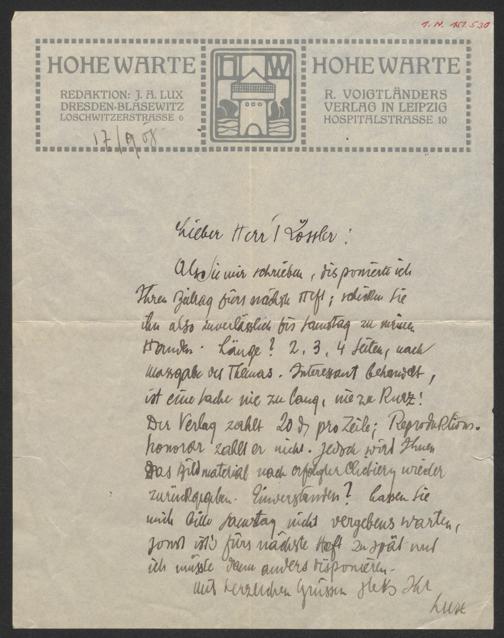 I. N. 151.530
HOHE WARTE
REDAKTION: J. A. LUX
DRESDEN-BLASEWITZ
LOSCHWITZERSTRASSE 6
H W
HOHE WARTE
R. VOIGTLÄNDERS
VERLAG IN LEIPZIG
HOSPITALSTRASSE 10
Lieber Herr Rössler!
Als Sie mir schrieben, disponierte ich
Ihren Beitrag fürs nächste Heft; schicken Sie
ihn also zuverlässlich bis Samstag zu meinen
Handen. Länge? 2, 3, 4 Seiten, nach
Massgabe des Themas. Interessant behandelt,
ist eine Sache nie zu lang, nie zu kurz!
Der Verlag zahlt 20 ₰ pro Zeile; Reproduktions-
honorar zahlt er nicht. Jedoch wird Ihnen
das Bildmaterial nach erfolgter Clichierg wieder
zurückgegeben. Einverstanden? Lassen Sie
mich bitte Samstag nicht vergebens warten,
sonst ist's fürs nächste Heft zu spät und
ich müsste dann anders disponieren.
Mit herzlichen Grüssen stets Ihr
Lux